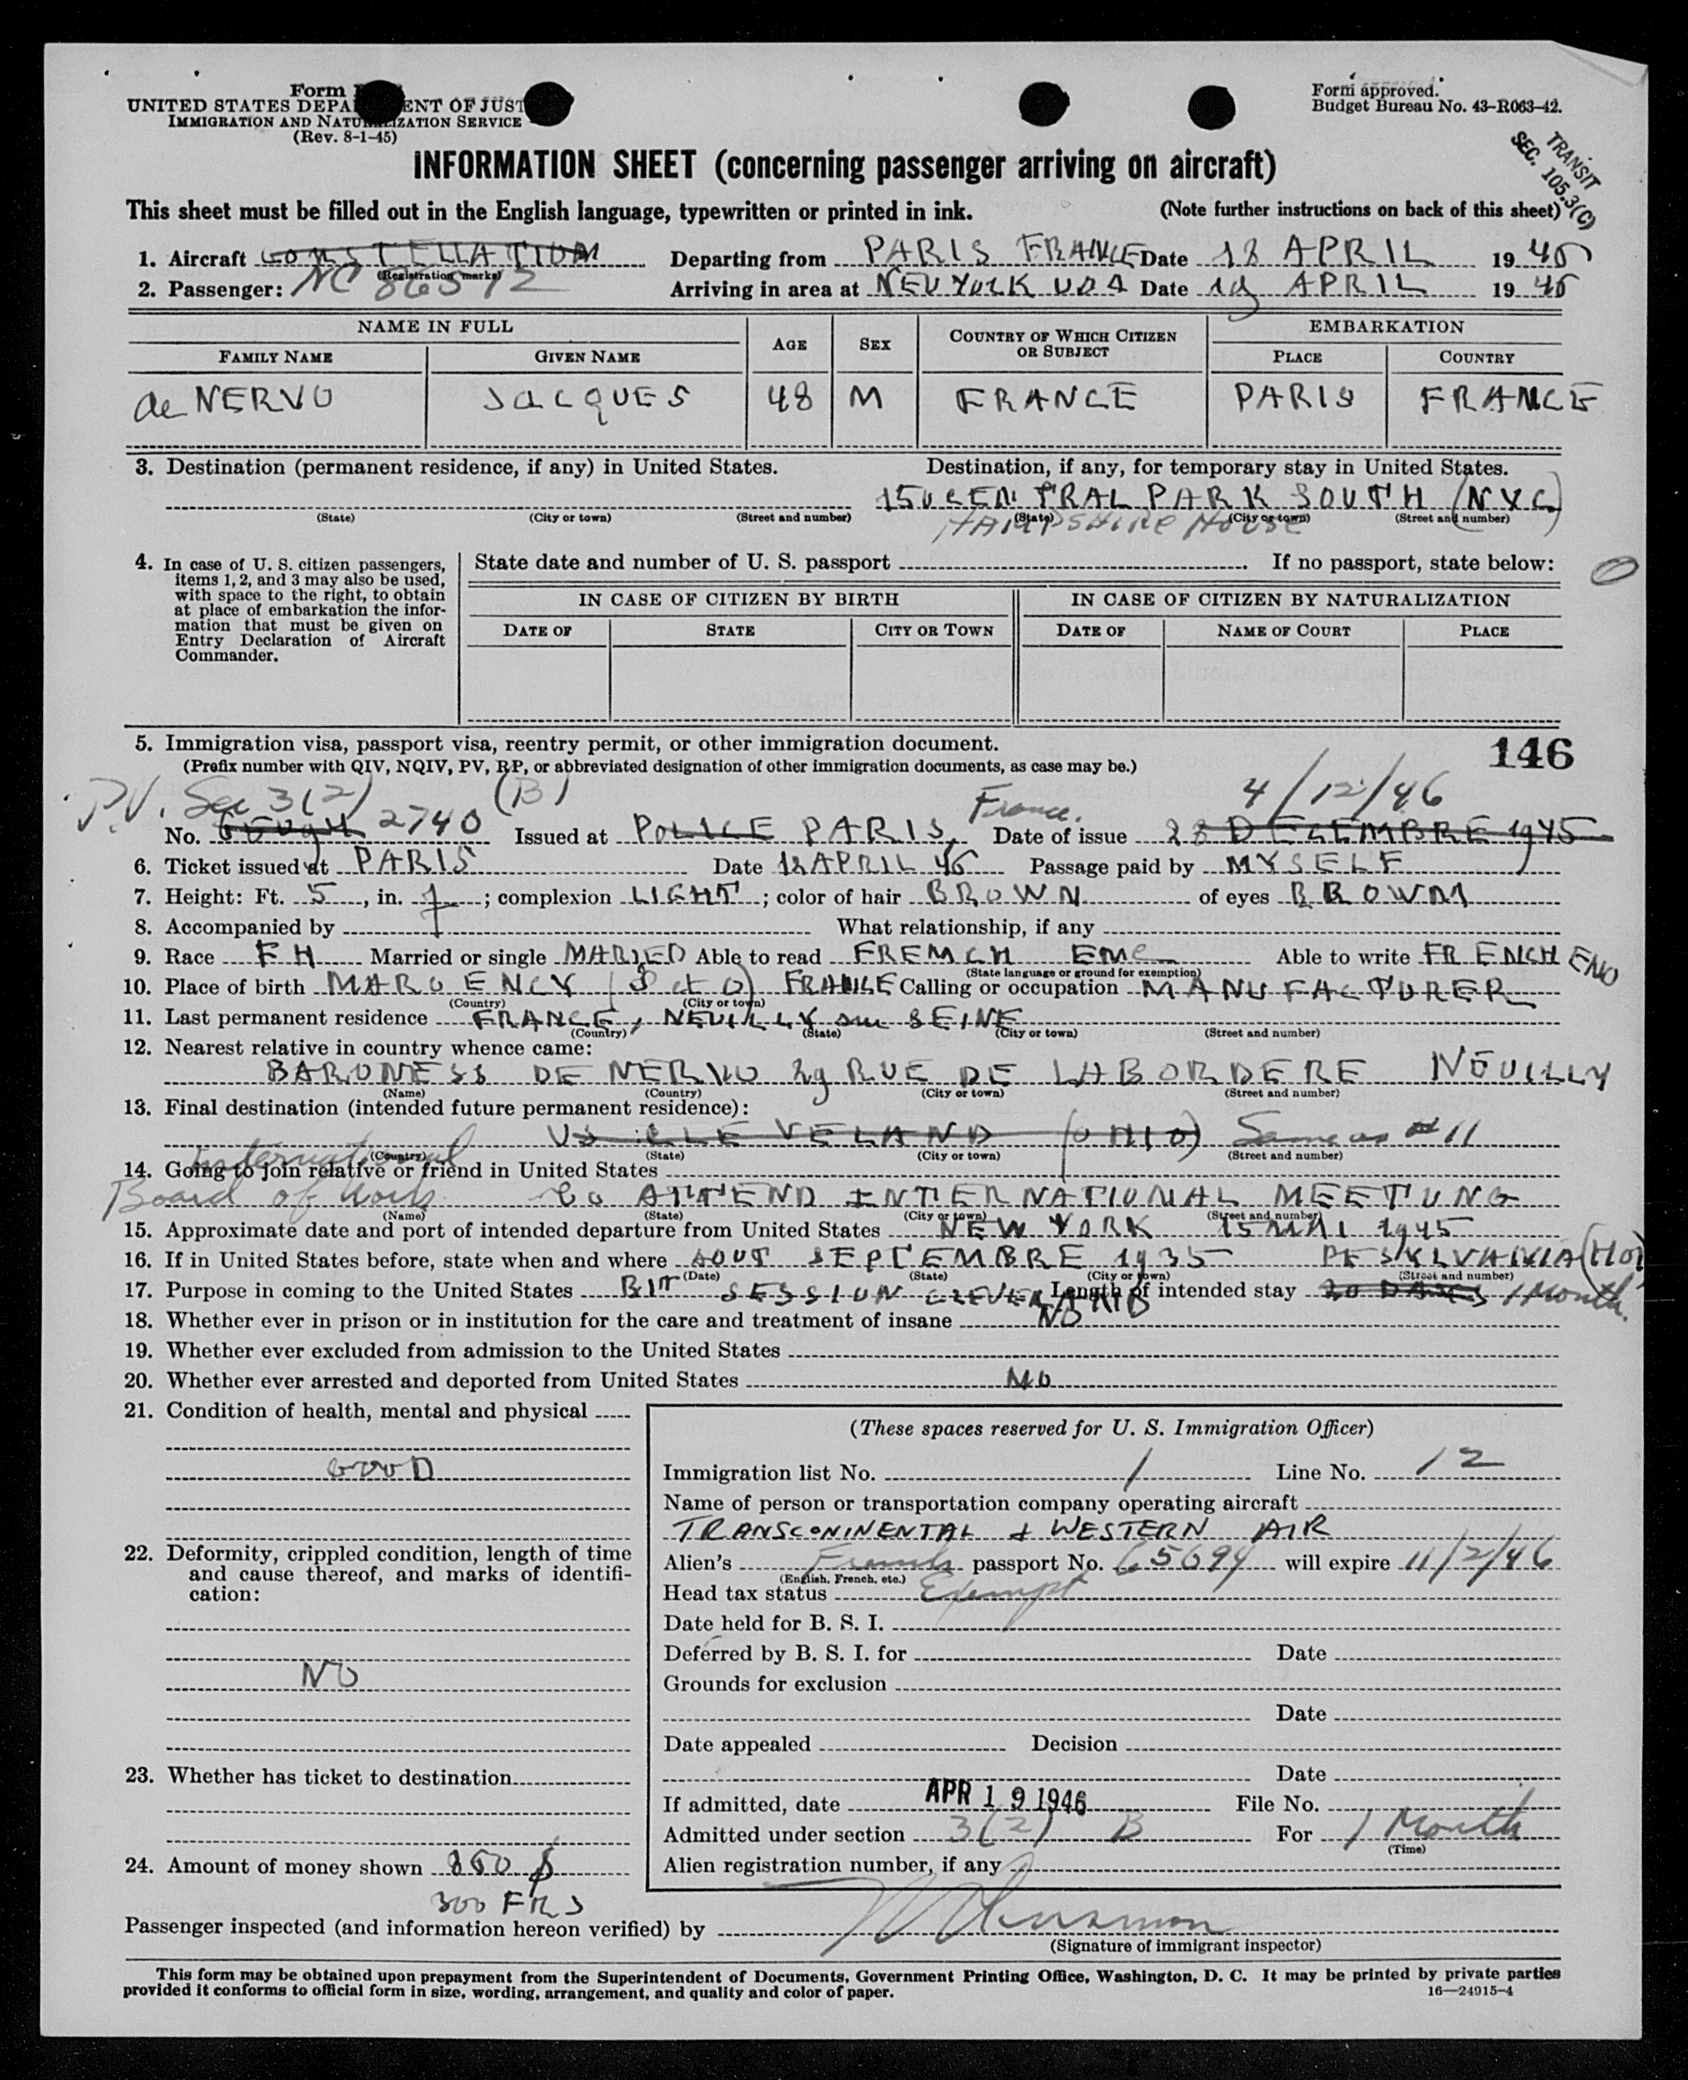 Form
UNITED STATES DEPA ENT OF JUST
IMMIGRATION AND NATURALIZATION SERVICE
(Rev. 8-1-45)
Form approved.
Budget Bureau No. 43-R063-42.
TRANSIT
SEC. 105.3(C)
INFORMATION SHEET (concerning passenger arriving on aircraft)
This sheet must be filled out in the English language, typewritten or printed in ink. (Note further instructions on back of this sheet)
1. Aircraft CONSTELLATION Departing from PARIS FRANCE Date 18 APRIL 19 46
(Registration marks)
2. Passenger: NC 86512 Arriving in area at NEW YORK USA Date 19 APRIL 19 46
NAME IN FULL AGE SEX COUNTRY OF WHICH CITIZEN OR SUBJECT EMBARKATION
FAMILY NAME GIVEN NAME PLACE COUNTRY
de NERVO JACQUES 48 M FRANCE PARIS FRANCE
3. Destination (permanent residence, if any) in United States. Destination, if any, for temporary stay in United States.
150 CENTRAL PARK SOUTH (NYC)
(State) (City or town) (Street and number) (State) (City or town) (Street and number)
HAMPSHIRE HOUSE
4. In case of U. S. citizen passengers, items 1, 2, and 3 may also be used, with space to the right, to obtain at place of embarkation the information that must be given on Entry Declaration of Aircraft Commander.
State date and number of U. S. passport If no passport, state below:
0
IN CASE OF CITIZEN BY BIRTH IN CASE OF CITIZEN BY NATURALIZATION
DATE OF STATE CITY OR TOWN DATE OF NAME OF COURT PLACE
5. Immigration visa, passport visa, reentry permit, or other immigration document. 146
(Prefix number with QIV, NQIV, PV, RP, or abbreviated designation of other immigration documents, as case may be.)
P.V. Sec 3(2) (B) France. 4/12/46
No. 2740 Issued at POLICE PARIS, Date of issue 28 DECEMBRE 1945
6. Ticket issued at PARIS Date 18 APRIL 46 Passage paid by MYSELF
7. Height: Ft. 5, in. 7; complexion LIGHT; color of hair BROWN of eyes BROWN
8. Accompanied by What relationship, if any
9. Race FH Married or single MARIED Able to read FRENCH ENG Able to write FRENCH ENG
(State language or ground for exemption)
10. Place of birth MARGENCY (S et O) FRANCE Calling or occupation MANUFACTURER
(Country) (City or town)
11. Last permanent residence FRANCE, NEUILLY sur SEINE
(Country) (State) (City or town) (Street and number)
12. Nearest relative in country whence came:
BARONESS DE NERVO 29 RUE DE LABORDERE NEUILLY
(Name) (Country) (City or town) (Street and number)
13. Final destination (intended future permanent residence):
US CLEVELAND (OHIO) Same as #11
(Country) (State) (City or town) (Street and number)
International
14. Going to join relative or friend in United States
Board of Work to ATTEND INTERNATIONAL MEETING
(Name) (State) (City or town) (Street and number)
15. Approximate date and port of intended departure from United States NEW YORK 15 MAI 1945
16. If in United States before, state when and where AOUT SEPTEMBRE 1935
(Date) (State) (City or town) (Street and number)
17. Purpose in coming to the United States BIT SESSION Length of intended stay 20 DAYS 1 Month.
18. Whether ever in prison or in institution for the care and treatment of insane NO
19. Whether ever excluded from admission to the United States
20. Whether ever arrested and deported from United States NO
21. Condition of health, mental and physical
GOOD
22. Deformity, crippled condition, length of time and cause thereof, and marks of identification:
NO
23. Whether has ticket to destination
24. Amount of money shown 860 $
300 FRS
(These spaces reserved for U. S. Immigration Officer)
Immigration list No. 1 Line No. 12
Name of person or transportation company operating aircraft
TRANSCONINENTAL & WESTERN AIR
Alien's French passport No. 65694 will expire 11/2/46
(English, French, etc.)
Head tax status Exempt
Date held for B. S. I.
Deferred by B. S. I. for Date
Grounds for exclusion
Date
Date appealed Decision
Date
If admitted, date APR 19 1946 File No.
Admitted under section 3(2) B For 1 Month
(Time)
Alien registration number, if any
Passenger inspected (and information hereon verified) by
(Signature of immigrant inspector)
This form may be obtained upon prepayment from the Superintendent of Documents, Government Printing Office, Washington, D. C. It may be printed by private parties
provided it conforms to official form in size, wording, arrangement, and quality and color of paper. 16—24915-4